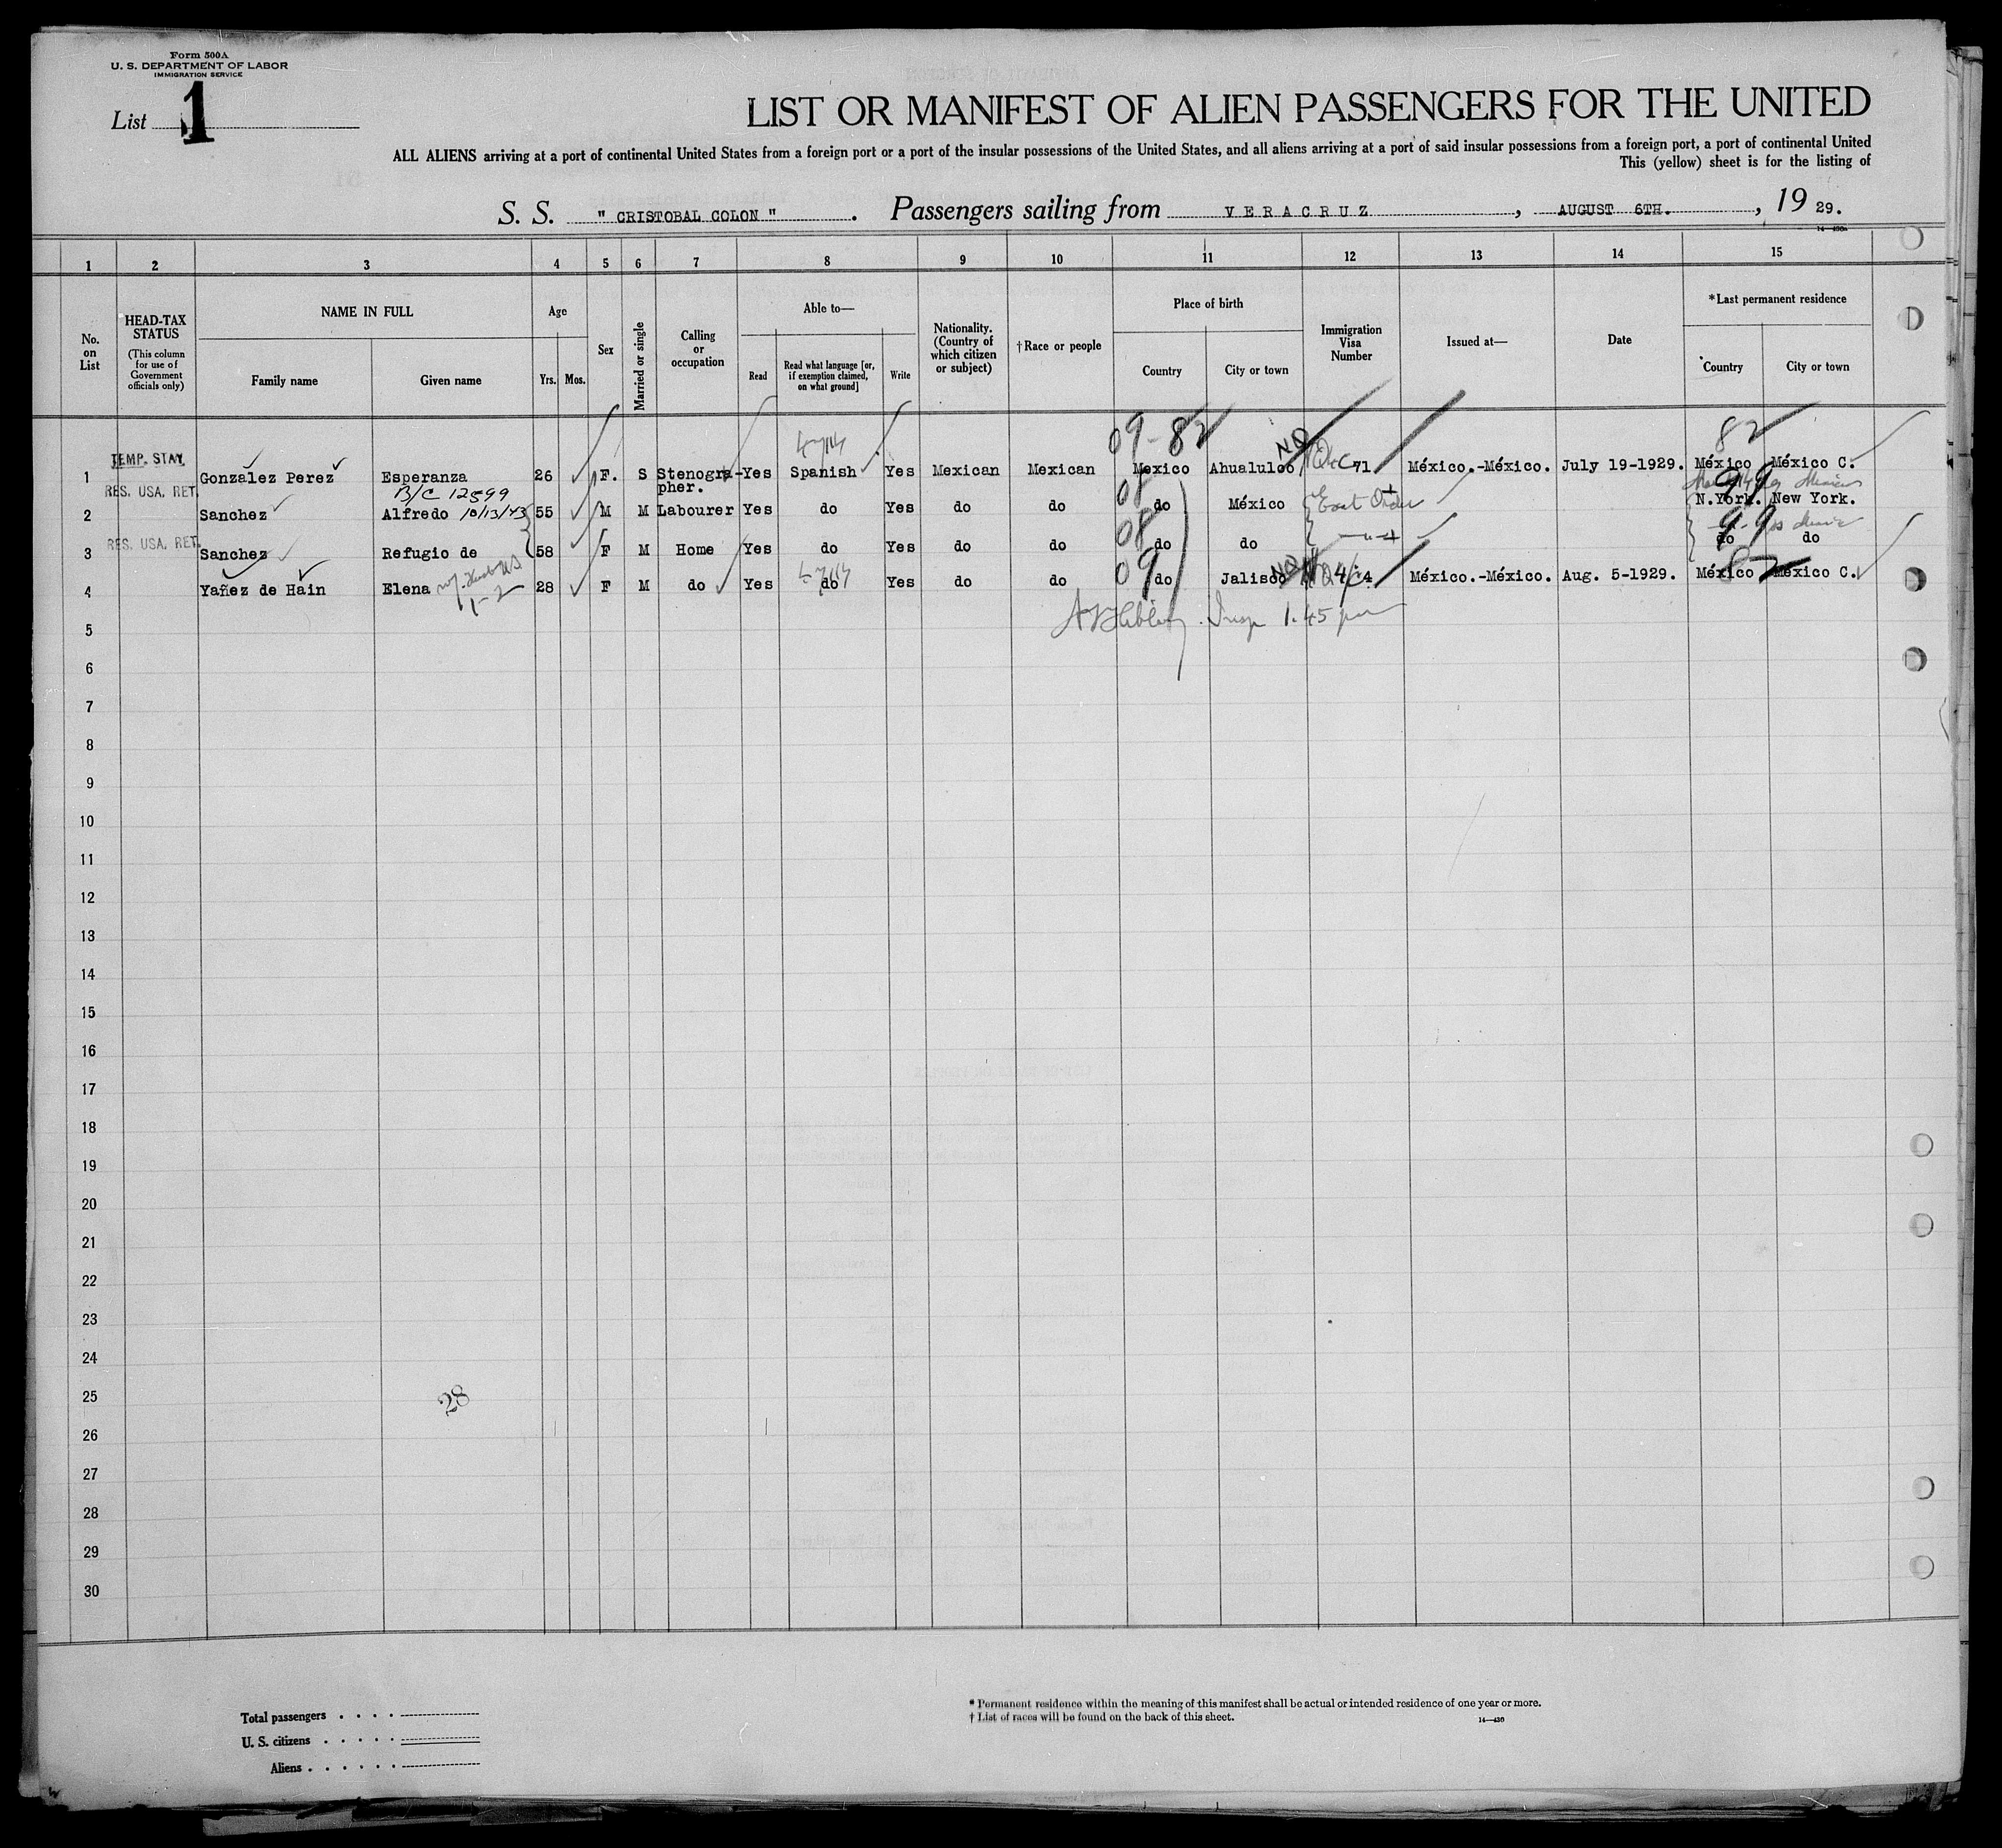 Form 500A
U. S. DEPARTMENT OF LABOR
IMMIGRATION SERVICE
List 1
LIST OR MANIFEST OF ALIEN PASSENGERS FOR THE UNITED
ALL ALIENS arriving at a port of continental United States from a foreign port or a port of the insular possessions of the United States, and all aliens arriving at a port of said insular possessions from a foreign port, a port of continental United
This (yellow) sheet is for the listing of
S. S. " CRISTOBAL COLON " . Passengers sailing from VERACRUZ , AUGUST 6TH. , 19 29.
1 2 3 4 5 6 7 8 9 10 11 12 13 14 15
No. on List
HEAD-TAX STATUS
(This column for use of Government officials only)
NAME IN FULL
Family name
Given name
Age
Yrs. Mos.
Sex
Married or single
Calling or occupation
Able to—
Read
Read what language [or, if exemption claimed, on what ground]
Write
Nationality. (Country of which citizen or subject)
†Race or people
Place of birth
Country
City or town
Immigration Visa Number
Issued at—
Date
*Last permanent residence
Country
City or town
09-82 NQ 82
TEMP. STAY
1 Gonzalez Perez Esperanza 26 F. S Stenogra-pher. Yes Spanish Yes Mexican Mexican Mexico Ahualulco 71 México.-México. July 19-1929. México México C.
RES. USA. RET. B/C 12599 08 99
2 Sanchez Alfredo 10/13/43 55 M M Labourer Yes do Yes do do do México N.York. New York.
RES. USA. RET. 08 99
3 Sanchez Refugio de 58 F M Home Yes do Yes do do do do do do
09 NQ 82
4 Yañez de Hain Elena 28 F M do Yes do Yes do do do Jalisco México.-México. Aug. 5-1929. México México C.
1-2
Insp 1.45 pm
5
6
7
8
9
10
11
12
13
14
15
16
17
18
19
20
21
22
23
24
25
28
26
27
28
29
30
Total passengers
U. S. citizens
Aliens
* Permanent residence within the meaning of this manifest shall be actual or intended residence of one year or more.
† List of races will be found on the back of this sheet.
14—430